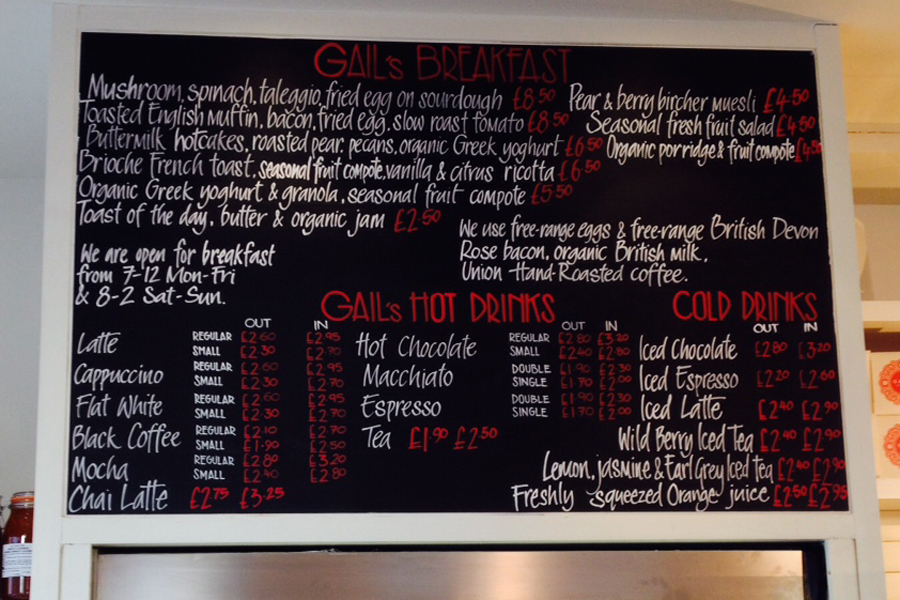 GAIL's BREAKFAST
Mushroom, spinach, taleggio, fried egg on sourdough £8.50
Toasted English muffin, bacon, fried egg, slow roast tomato £8.50
Buttermilk hotcakes, roasted pear, pecans, organic Greek yoghurt £6.50
Brioche French toast, seasonal fruit compote, vanilla & citrus ricotta £6.50
Organic Greek yoghurt & granola, seasonal fruit compote £5.50
Toast of the day, butter & organic jam £2.50
Pear & berry bircher muesli £4.50
Seasonal fresh fruit salad £4.50
Organic porridge & fruit compote £4.50
We are open for breakfast
from 7-12 Mon-Fri
& 8-2 Sat-Sun.
We use free-range eggs & free-range British Devon
Rose bacon, organic British milk,
Union Hand-Roasted coffee.
GAIL's HOT DRINKS
OUT IN
Latte REGULAR £2.60 £2.95
SMALL £2.30 £2.70
Cappuccino REGULAR £2.60 £2.95
SMALL £2.30 £2.70
Flat White REGULAR £2.60 £2.95
SMALL £2.30 £2.70
Black Coffee REGULAR £2.10 £2.70
SMALL £1.90 £2.50
Mocha REGULAR £2.80 £3.20
SMALL £2.40 £2.80
Chai Latte £2.75 £3.25
OUT IN
Hot Chocolate REGULAR £2.80 £3.20
SMALL £2.40 £2.80
Macchiato DOUBLE £1.90 £2.30
SINGLE £1.70 £2.00
Espresso DOUBLE £1.90 £2.30
SINGLE £1.70 £2.00
Tea £1.90 £2.50
COLD DRINKS
OUT IN
Iced Chocolate £2.80 £3.20
Iced Espresso £2.20 £2.60
Iced Latte £2.40 £2.90
Wild Berry Iced Tea £2.40 £2.90
Lemon, jasmine & Earl Grey Iced tea £2.40 £2.90
Freshly squeezed Orange juice £2.50 £2.95